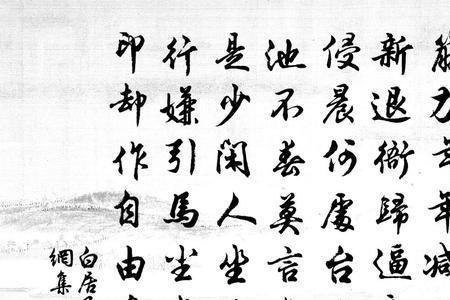 筋力年年减
新退衙歸逼
侵晨何處台
池不春莫言
是少閑人坐
行嫌引馬尘
印却作自由
白居
網集